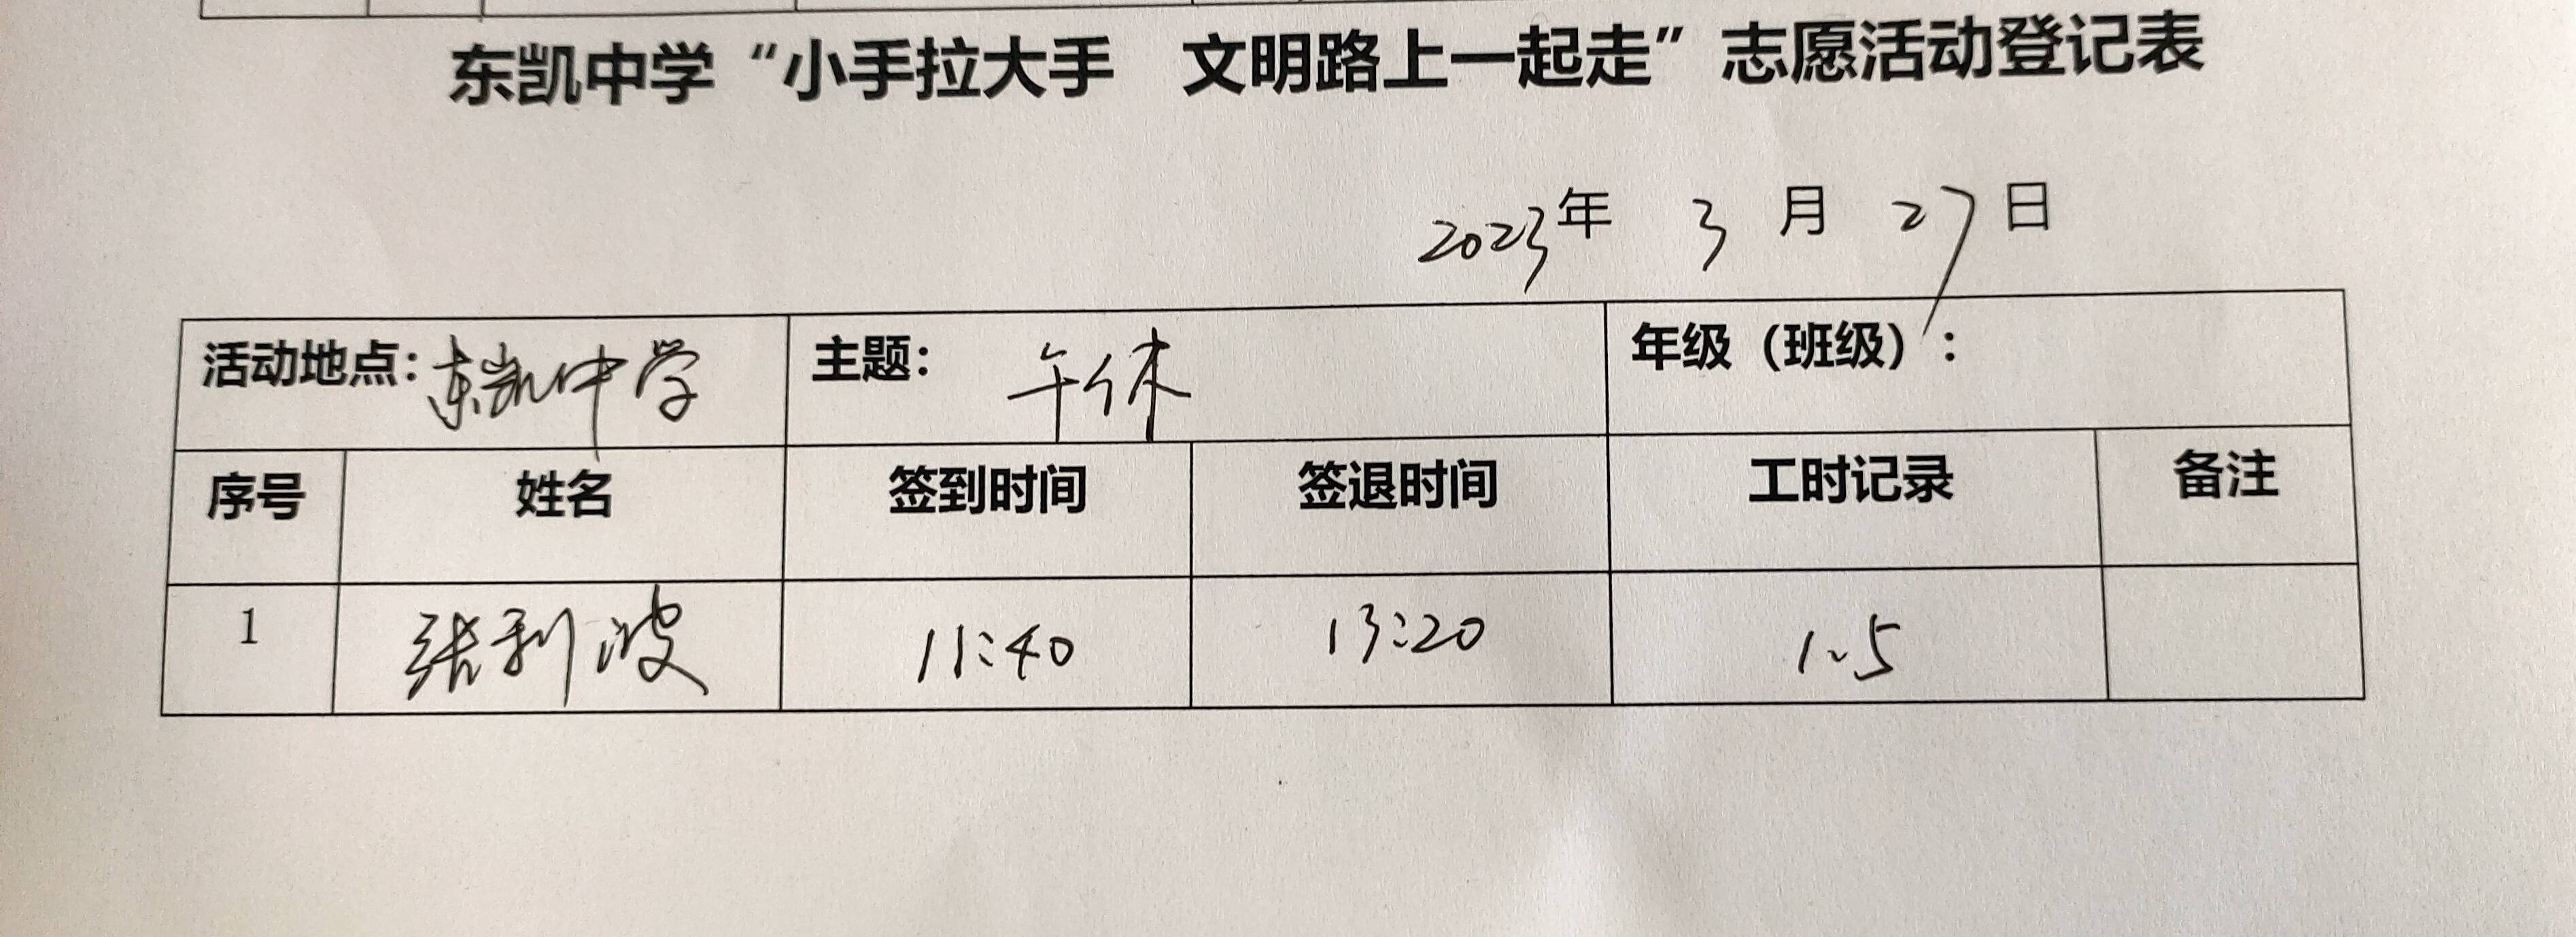 东凯中学“小手拉大手 文明路上一起走”志愿活动登记表
2023年 3 月 27 日
活动地点：东凯中学 主题： 午休 年级（班级）：
序号 姓名 签到时间 签退时间 工时记录 备注
1 张利波 11:40 13:20 1.5